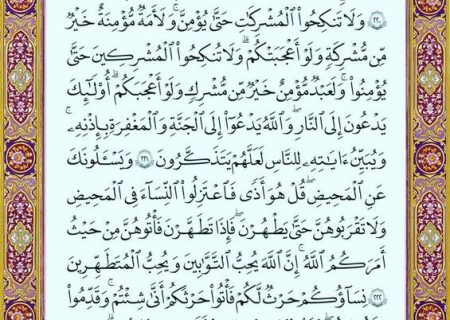 ﴿٢٢٠﴾ وَلَا تَنكِحُوا۟ ٱلْمُشْرِكَـٰتِ حَتَّىٰ يُؤْمِنَّ ۚ وَلَأَمَةٌ مُّؤْمِنَةٌ خَيْرٌ
مِّن مُّشْرِكَةٍ وَلَوْ أَعْجَبَتْكُمْ ۗ وَلَا تُنكِحُوا۟ ٱلْمُشْرِكِينَ حَتَّىٰ
يُؤْمِنُوا۟ ۚ وَلَعَبْدٌ مُّؤْمِنٌ خَيْرٌ مِّن مُّشْرِكٍ وَلَوْ أَعْجَبَكُمْ ۗ أُو۟لَـٰٓئِكَ
يَدْعُونَ إِلَى ٱلنَّارِ ۖ وَٱللَّهُ يَدْعُوٓا۟ إِلَى ٱلْجَنَّةِ وَٱلْمَغْفِرَةِ بِإِذْنِهِۦ ۖ
وَيُبَيِّنُ ءَايَـٰتِهِۦ لِلنَّاسِ لَعَلَّهُمْ يَتَذَكَّرُونَ ﴿٢٢١﴾ وَيَسْـَٔلُونَكَ
عَنِ ٱلْمَحِيضِ ۖ قُلْ هُوَ أَذًى فَٱعْتَزِلُوا۟ ٱلنِّسَآءَ فِى ٱلْمَحِيضِ ۖ
وَلَا تَقْرَبُوهُنَّ حَتَّىٰ يَطْهُرْنَ ۖ فَإِذَا تَطَهَّرْنَ فَأْتُوهُنَّ مِنْ حَيْثُ
أَمَرَكُمُ ٱللَّهُ ۚ إِنَّ ٱللَّهَ يُحِبُّ ٱلتَّوَّٰبِينَ وَيُحِبُّ ٱلْمُتَطَهِّرِينَ
﴿٢٢٢﴾ نِسَآؤُكُمْ حَرْثٌ لَّكُمْ فَأْتُوا۟ حَرْثَكُمْ أَنَّىٰ شِئْتُمْ ۖ وَقَدِّمُوا۟